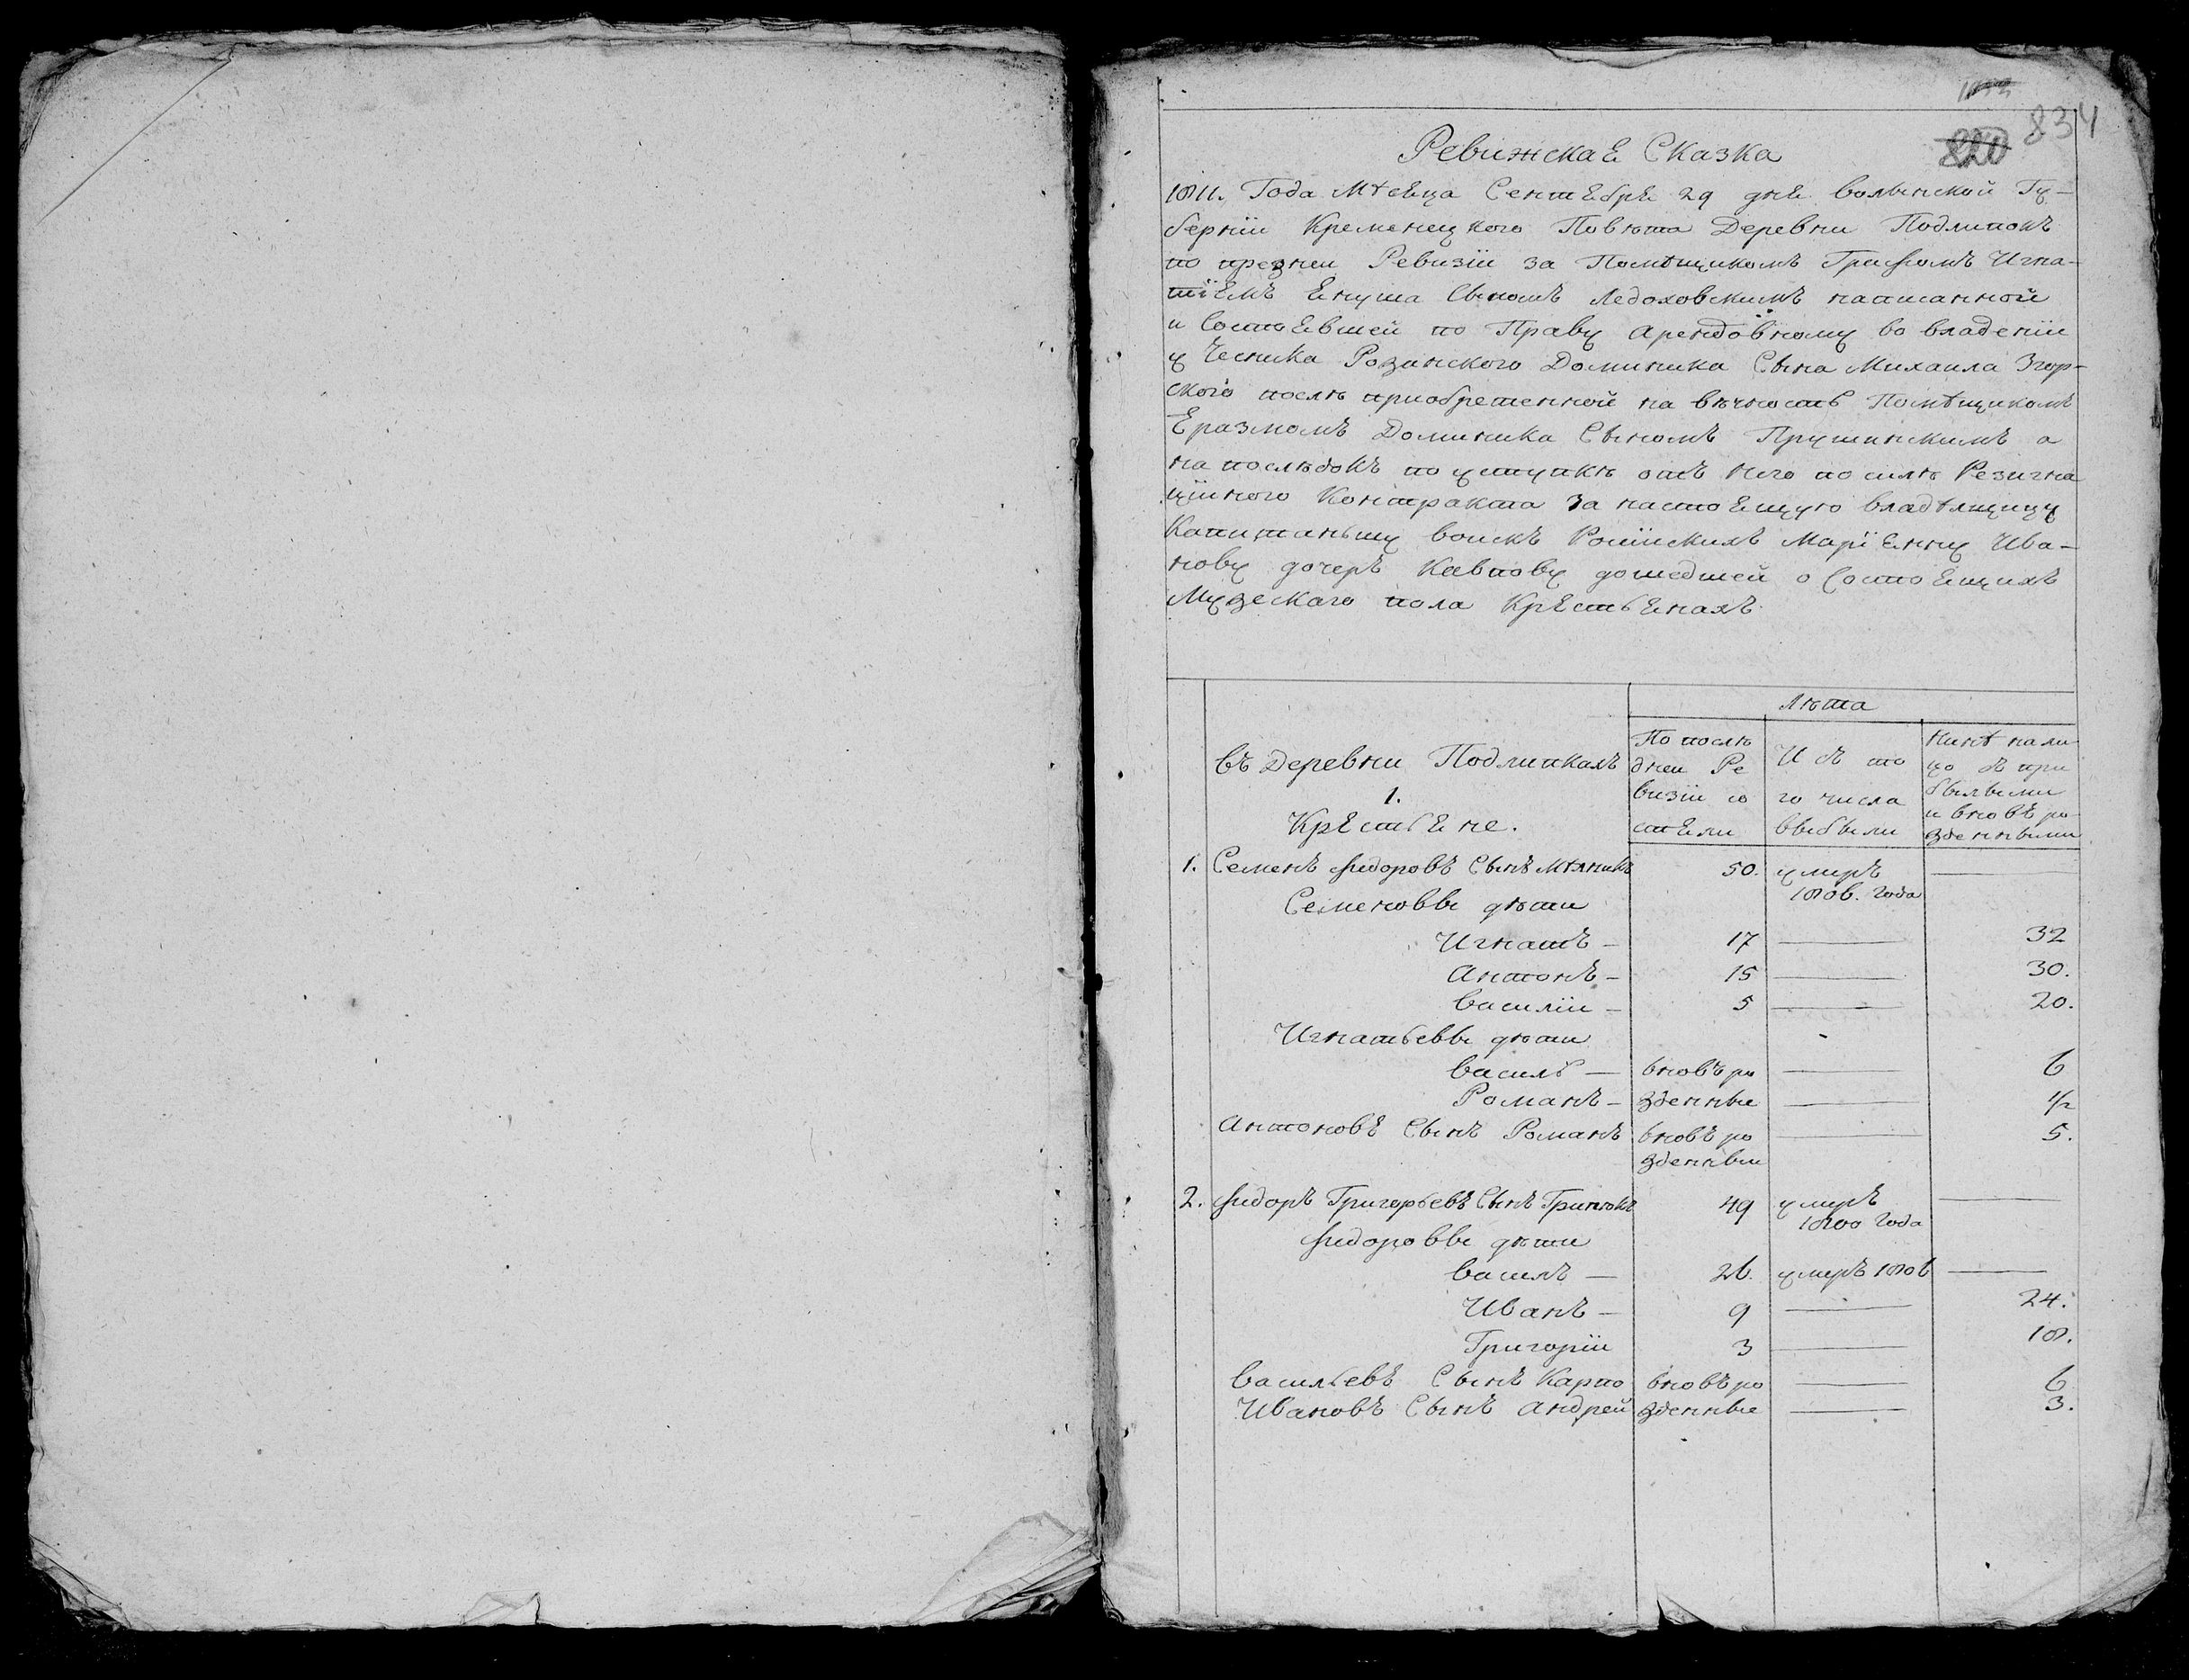 834
Ревижская Сказка
1811. Года Мѣсяца Сентября 29 дня Волынской Гу-
берніи Кременецкого Повѣта Деревни Подлипокъ
по прежнеи Ревизіи за Помѣщикомъ Графомъ Игна-
тіемъ Януша Сыномъ Ледоховскимъ написанной
и Состоявшей по Праву Арендовному во владеніи
у Чесника Розанского Доминика Сына Михаила Згор-
ского послѣ приобретенной на вѣчность Помѣщикомъ
Еразмомъ Доминика Сыномъ Прушинскимъ а
на послѣдокъ по уступкѣ отъ него по силѣ Резигна
ціиного Контракта за настоящую владѣлщицу
Капитаньшу воискъ Росіискихъ Маріянну Ива-
нову дочерь дошедшей о Состоящихъ
Мужескаго пола Крястьянахъ
Лѣта
въ Деревни Подлипкахъ
1.
Крястьяне.
По послѣ
днеи Ре
визіи со
стяли
И съ то
го числа
выбыли
Нинѣ нали
цо съ при
былыми
и вновъ ро
жденными
1. Семенъ Фидоровъ Сынъ Мѣлникъ 50. умиръ
1806. Года
Семеновы дѣти
Игнатъ - 17 32
Антонъ - 15 30.
Василіи - 5 20.
Игнатьевы дѣти
Василь - вновъ ро 6
Романъ - жденные 1/2
Антоновъ Сынъ Романъ вновъ ро 5.
жденныи
2. Фидоръ Григорьевъ Сынъ Гринюкъ 49 умиръ
1800 Года
Фидоровы дѣти
Василъ - 26. умиръ 1806
Иванъ - 9 24.
Григоріи 3 18.
Васильевъ Сынъ Карпо вновъ ро 6
Ивановъ Сынъ Андрей жденные 3.